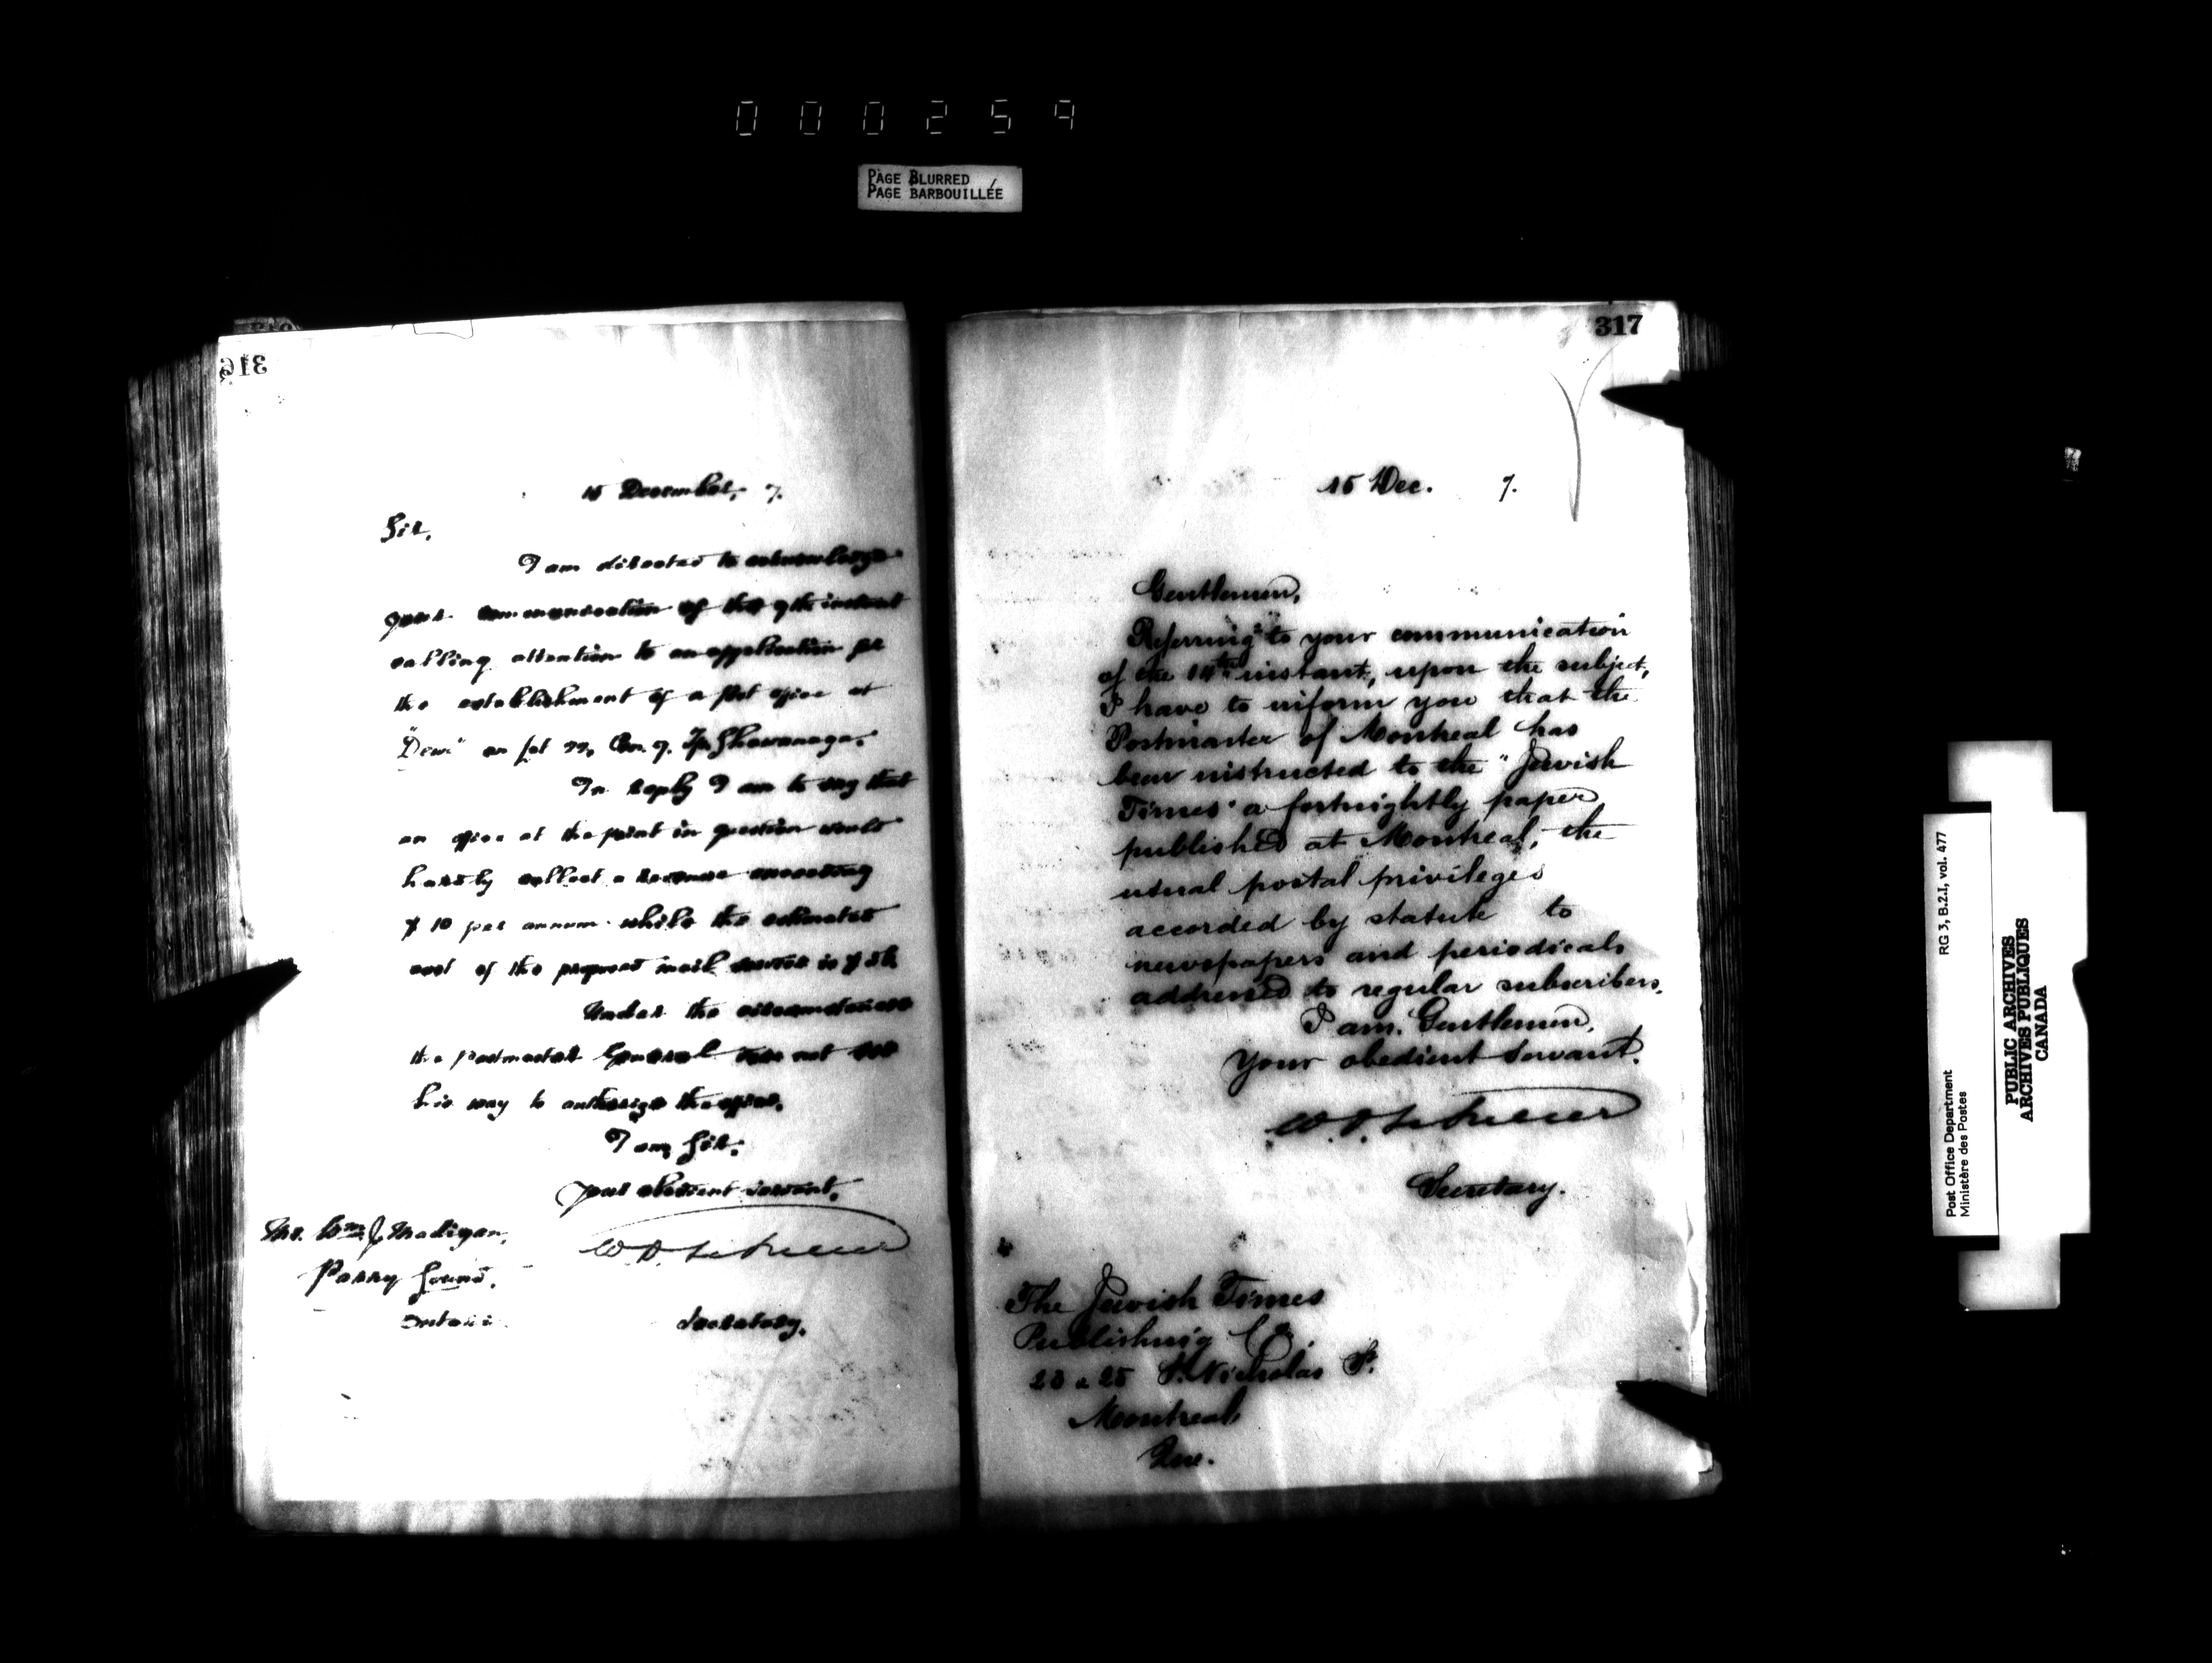 000259
PAGE BLURRED
PAGE BARBOUILLÉE
316
15 December, 7.
Sir,
I am directed to acknowledge
your communication of the 9th instant
calling attention to an application for
the establishment of a post office at
"Dewi" on Lot 22, Con. 9, Tp. Shawanaga.
In reply I am to say that
an office at the point in question would
hardly collect a revenue exceeding
$10 per annum while the estimated
cost of the proposed mail service is $
Under the circumstances
the Postmaster General does not see
his way to authorize the office.
I am, Sir,
Your obedient servant,
Mr. Wm. J. Madigan,
Parry Sound,
Ontario
Secretary.
317
15 Dec. 7.
Gentlemen,
Referring to your communication
of the 14th instant, upon the subject,
I have to inform you that the
Postmaster of Montreal has
been instructed to the "Jewish
Times" a fortnightly paper
published at Montreal, the
usual postal privileges
accorded by statute to
newspapers and periodicals
addressed to regular subscribers.
I am, Gentlemen,
Your obedient servant.
Secretary.
The Jewish Times
Publishing Co.
23 & 25 St. Nicholas St.
Montreal,
Que.
RG 3, B.2.I, vol. 477
Post Office Department
Ministère des Postes
PUBLIC ARCHIVES
ARCHIVES PUBLIQUES
CANADA